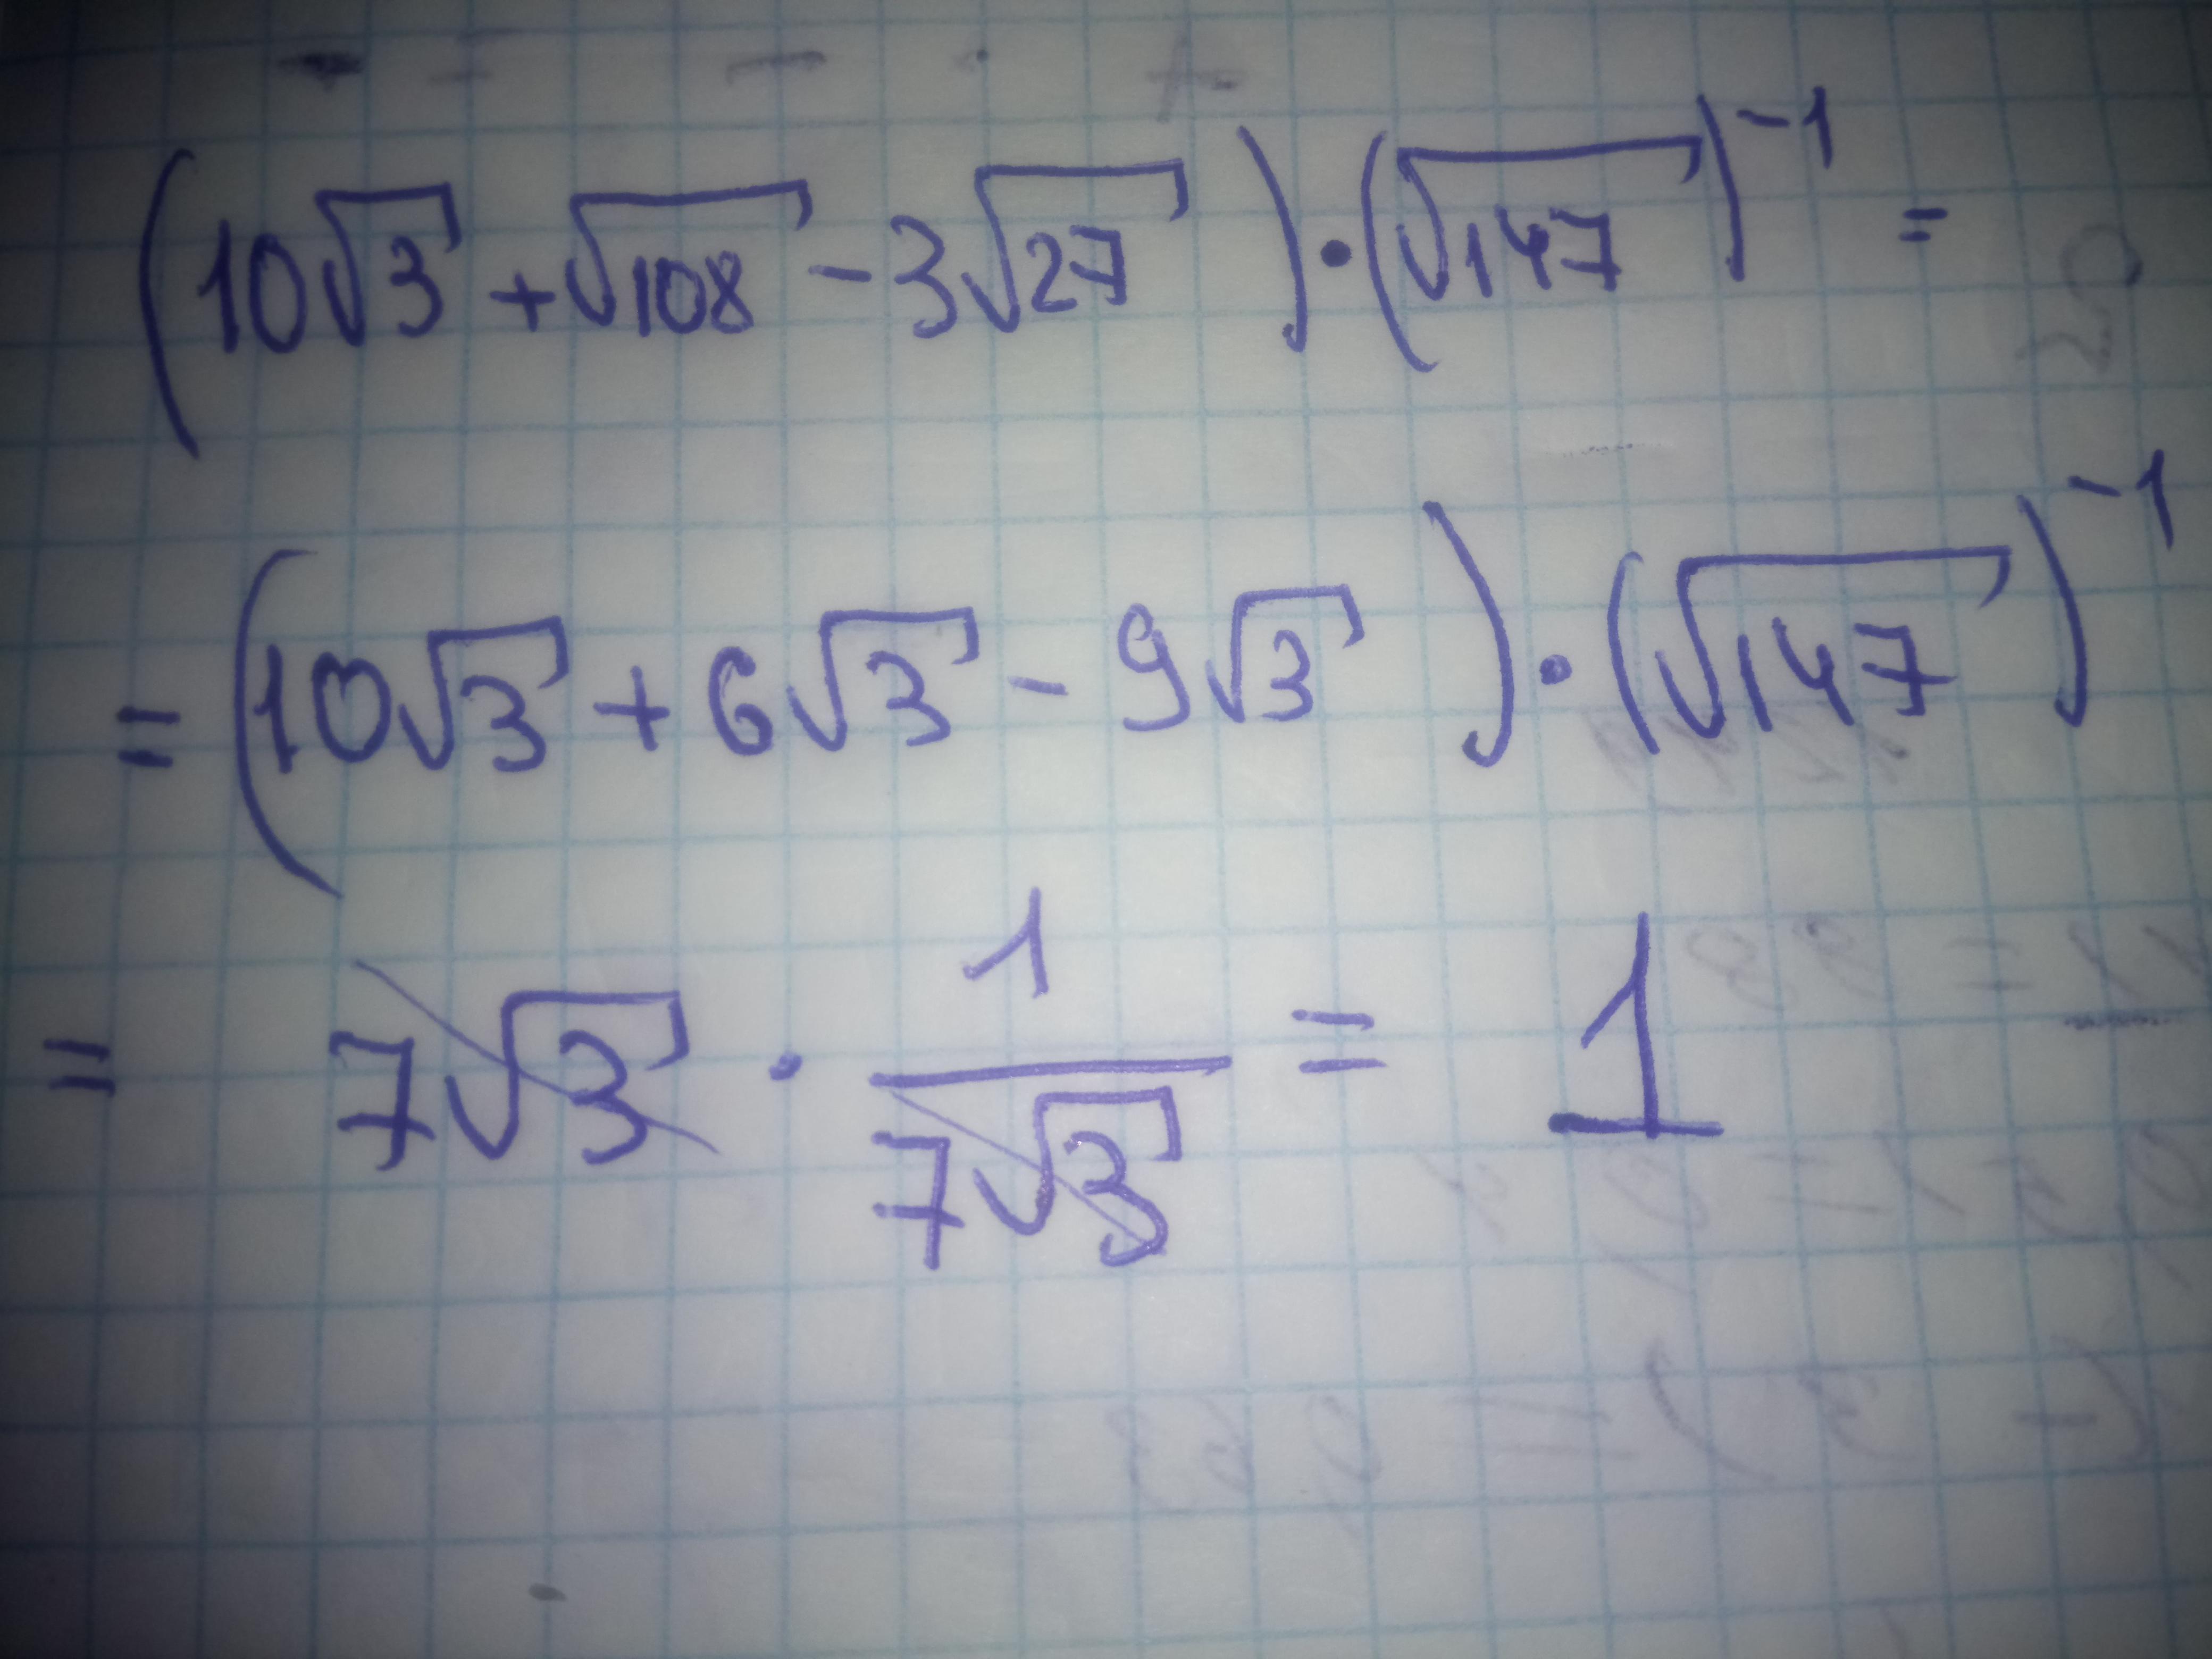 (10√3 + √108 - 3√27) · (√147)⁻¹ =
= (10√3 + 6√3 - 9√3) · (√147)⁻¹
= 7√3 · 1/7√3 = 1